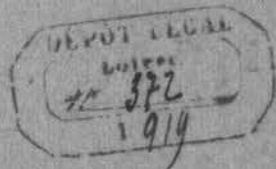 DÉPÔT LÉGAL
Loiret
N° 372
1919